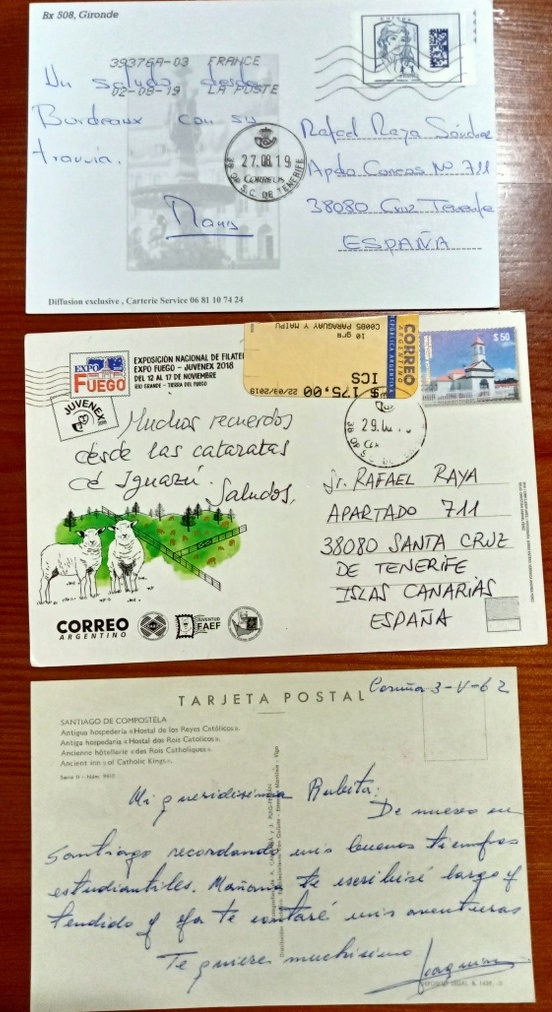 Bx 508, Gironde
39376A-03 FRANCE
02-08-19 LA POSTE
Un saludo desde
Bordeaux con su
tranvía.
27.08.19
CORREOS
OP S.C. DE TENERIFE
Rafael Raya Sánchez
Apdo Correos Nº 711
38080 Cruz Tenerife
ESPAÑA
Diffusion exclusive , Carterie Service 06 81 10 74 24
EXPO
FUEGO
EXPOSICIÓN NACIONAL DE FILATEL
EXPO FUEGO - JUVENEX 2018
DEL 12 AL 17 DE NOVIEMBRE
RIO GRANDE - TIERRA DEL FUEGO
JUVENEX
C0085 PARAGUAY Y MAIPU
10 grs
22/03/2019
ICS
$ 175,00
CORREO
ARGENTINO
REPUBLICA ARGENTINA
$50
Muchos recuerdos
desde las cataratas
de Iguazú.
Saludos,
Sr. RAFAEL RAYA
APARTADO 711
38080 SANTA CRUZ
DE TENERIFE
ISLAS CANARIAS
ESPAÑA
CORREO
ARGENTINO
FAEF
TARJETA POSTAL
Coruña 3-V-62
SANTIAGO DE COMPOSTELA
Antigua hospedería «Hostal de los Reyes Católicos».
Antiga hospedaria «Hostal dos Rois Catolicos».
Ancienne hôtellerie «des Rois Catholiques».
Ancient inn «of Catholic Kings».
Serie II - Núm. 9612
Mi queridísima Rubita:
De nuevo en
Santiago recordando mis buenos tiempos
estudiantiles. Mañana te escribiré largo y
tendido y ya te contaré mis aventuras
Te quiere muchísimo
Joaquín